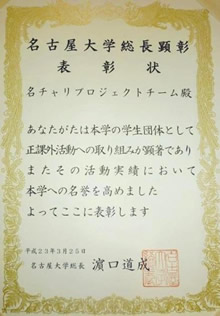 名古屋大学総長顕彰
表彰状
名チャリプロジェクトチーム殿
あなたがたは本学の学生団体として
正課外活動への取り組みが顕著であり
またその活動実績において
本学への名誉を高めました
よってここに表彰します
平成23年3月25日
名古屋大学総長 濵口道成